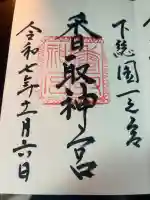 下総国一之宮
香取神宮
令和七年十一月六日